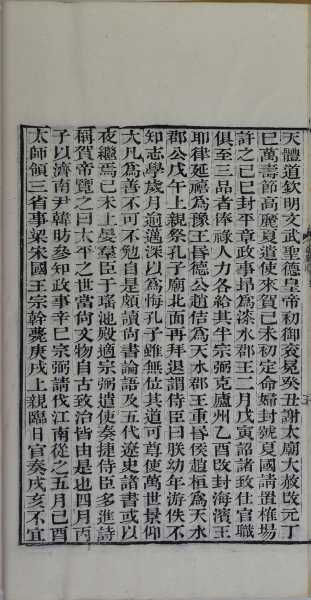 天體道欽明文武聖德皇帝初御衮冕癸丑謝太廟大赦改元丁
巳萬壽節高麗夏遣使來賀己未初定命婦封號夏國請置榷場
許之己巳封平章政事昂為漆水郡王二月戊寅詔諸致仕官職
俱至三品者俸祿人力各給其半宗弼克廬州乙酉改封海濱王
耶律延禧為豫王昏德公趙佶為天水郡王重昏侯趙桓為天水
郡公戊午上親祭孔子廟北面再拜退謂侍臣曰朕幼年游佚不
知志學歲月逾邁深以為悔孔子雖無位其道可尊使萬世景仰
大凡為善不可不勉自是頗讀尚書論語及五代遼史諸書或以
夜繼焉己未上晏羣臣于瑤池殿適宗弼遣使奏捷侍臣多進詩
稱賀帝覽之曰太平之世當尚文物自古致治皆由是也四月丙
子以濟南尹韓昉參知政事辛巳宗弼請伐江南從之五月己酉
太師領三省事梁宋國王宗幹薨庚戌上親臨日官奏戌亥不宜